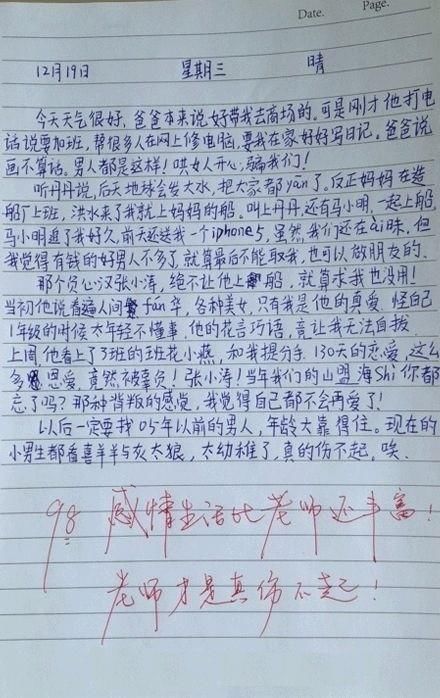 Date.
Page.
12月19日 星期三 晴
今天天气很好,爸爸本来说好带我去商场的。可是刚才他打电
话说要加班,帮很多人在网上修电脑,要我在家好好写日记。爸爸说
画不算话。男人都是这样!哄女人开心,骗我们!
听丹丹说,后天地球会发大水,把大家都yān了。反正妈妈在造
船厂上班,洪水来了我就上妈妈的船。叫上丹丹,还有马小明,一起上船,
马小明追了我好久,前天还送我一个iphone5,虽然我们还在ài昧,但
我觉得有钱的好男人不多了,就算最后不能取我,也可以做朋友的.
那个负心汉张小涛,绝不让他上船,就算求我也没用!
当初他说看遍人间fán华,各种美女,只有我是他的真爱.怪自己
1年级的时候太年轻不懂事.他的花言巧语,竟让我无法自拔
上周他看上了3班的班花小燕,和我提分手.130天的恋爱,这么
多恩爱,竟然被辜负!张小涛!当年我们的山盟海Shì你都
忘了吗?那种背叛的感觉,我觉得自己都不会再爱了!
以后一定要找05年以前的男人,年龄大靠得住。现在的
小男生都看喜羊羊与灰太狼,太幼稚了,真的伤不起,唉.
98 感情生活比老师还丰富!
老师才是真伤不起!